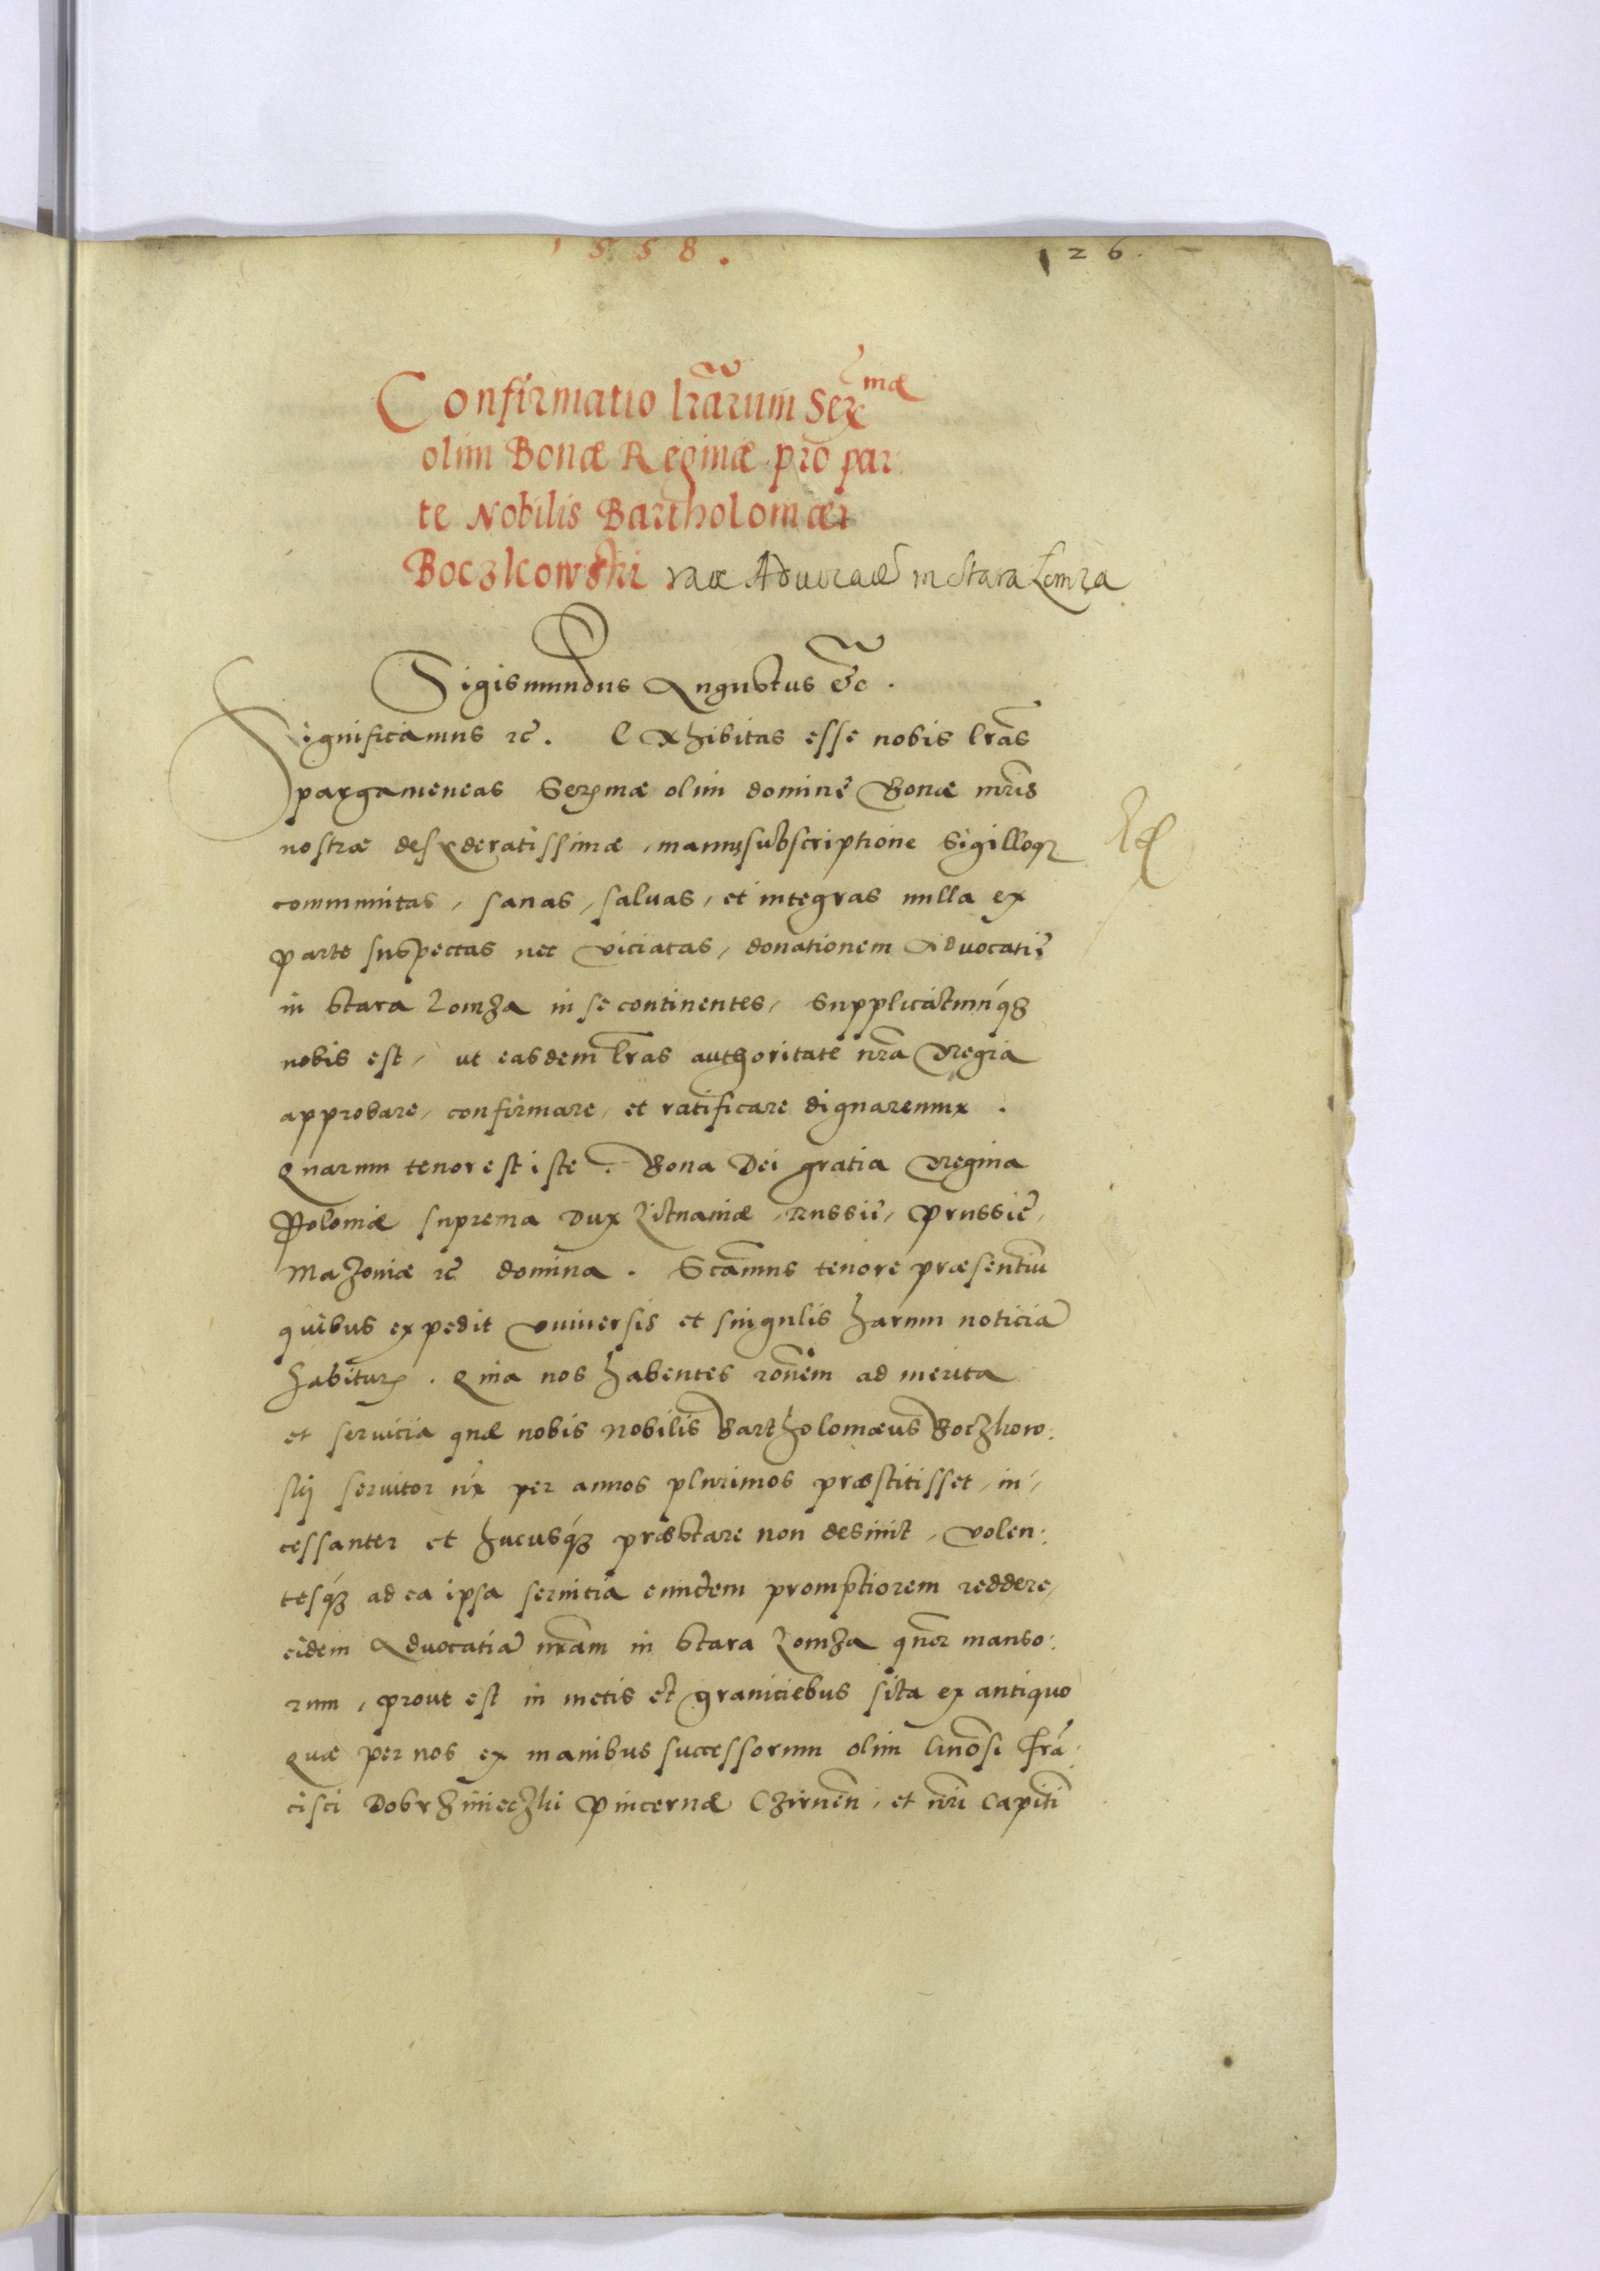 1558.
126.
Confirmatio lrãrum Serᵐᵃᵉ
olim Bonæ Reginæ pro par
te Nobilis Bartholomæi
Boczkowski rãe Advocaciæ in Stara Lomza
Sigismundus Augustus &c.
Significamus &c. Exhibitas esse nobis lrãs
pargameneas Serᵐæ olim dominę Bonæ mr̃is
nostræ desyderatissimæ, manus subscriptione Sigilloq3
communitas, sanas, salvas, et integras nulla ex
parte suspectas nec viciatas, donationem Advocatię
in Stara Lomza in se continentes, Supplicatumq3
nobis est, ut easdem lrãs authoritate nrã Regia
approbare, confirmare, et ratificare dignaremur.
Quarum tenor est iste. Bona Dei gratia Regina
Poloniæ suprema Dux Lituaniæ, Russię, Prussię,
Mazoviæ &c domina. Scãmus tenore præsentiũ
quibus expedit universis et singulis harum noticiã
habitur. Quia nos habentes rõnem ad merita
et servicia quæ nobis Nobilis Bartholomæus Boczkow:
skij servitor nr̃ per annos plurimos præstitisset, in,
cessanter et hucusq3 præstare non desinit, volen:
tesq3 ad ea ipsa servicia eundem promptiorem reddere,
eidem Advocatiã nrãm in Stara Lomza manso:
rum, prout est in metis et graniciebus sita ex antiquo
quæ per nos ex manibus successorum olim Gnõsi Frã,
cisci Dobrzinieczki Pincernæ Czirneñ, et nri Capiti